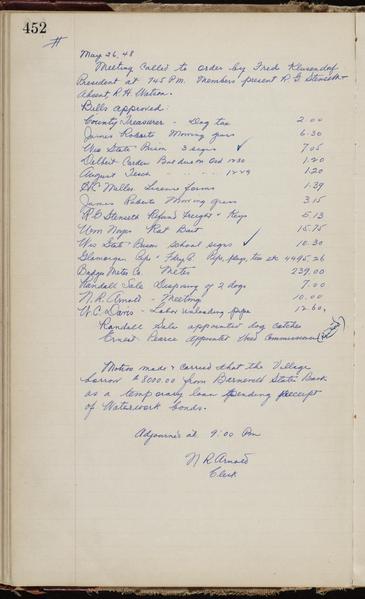 452
May 26, 48
Meeting Called to order by Fred Klusendorf
President at 745 P.M. Members present R.G Stenseth
Absent R.H. Watson.
Bills approved:
County Treasurer - Dog tax 2.00
James Roberts Mowing grass 6.30
Wis State Prison 3 signs ✓ 7.05
Delbert Carden Bal due on Ord 1230 1.20
August " " " 1229 1.20
H.C. Miller License forms 1.39
James Roberts Mowing grass 3.15
R.G Stenseth Refund Freight + Keys 5.13
Wm Noyes Rat Bait 15.75
Wis State Prison School signs ✓ 10.30
Glamorgan Pipe + Fdry Co. Pipe, plugs, tees etc 4495.26
Badger Meter Co. Meter 239.00
Randall Sale Disposing of 2 dogs 7.00
N.R. Arnold - Meeting 10.00
W.C. Davis - Labor unloading pipe 12.60
Randall Sale appointed dog catcher
Ernest Pearce appointed Weed Commissioner
Motion made + carried that the Village
borrow $5000.00 from Barneveld State Bank
as a temporary loan pending receipt
of Waterwork bonds.
Adjourned at 9:00 Pm
N R Arnold
Clerk